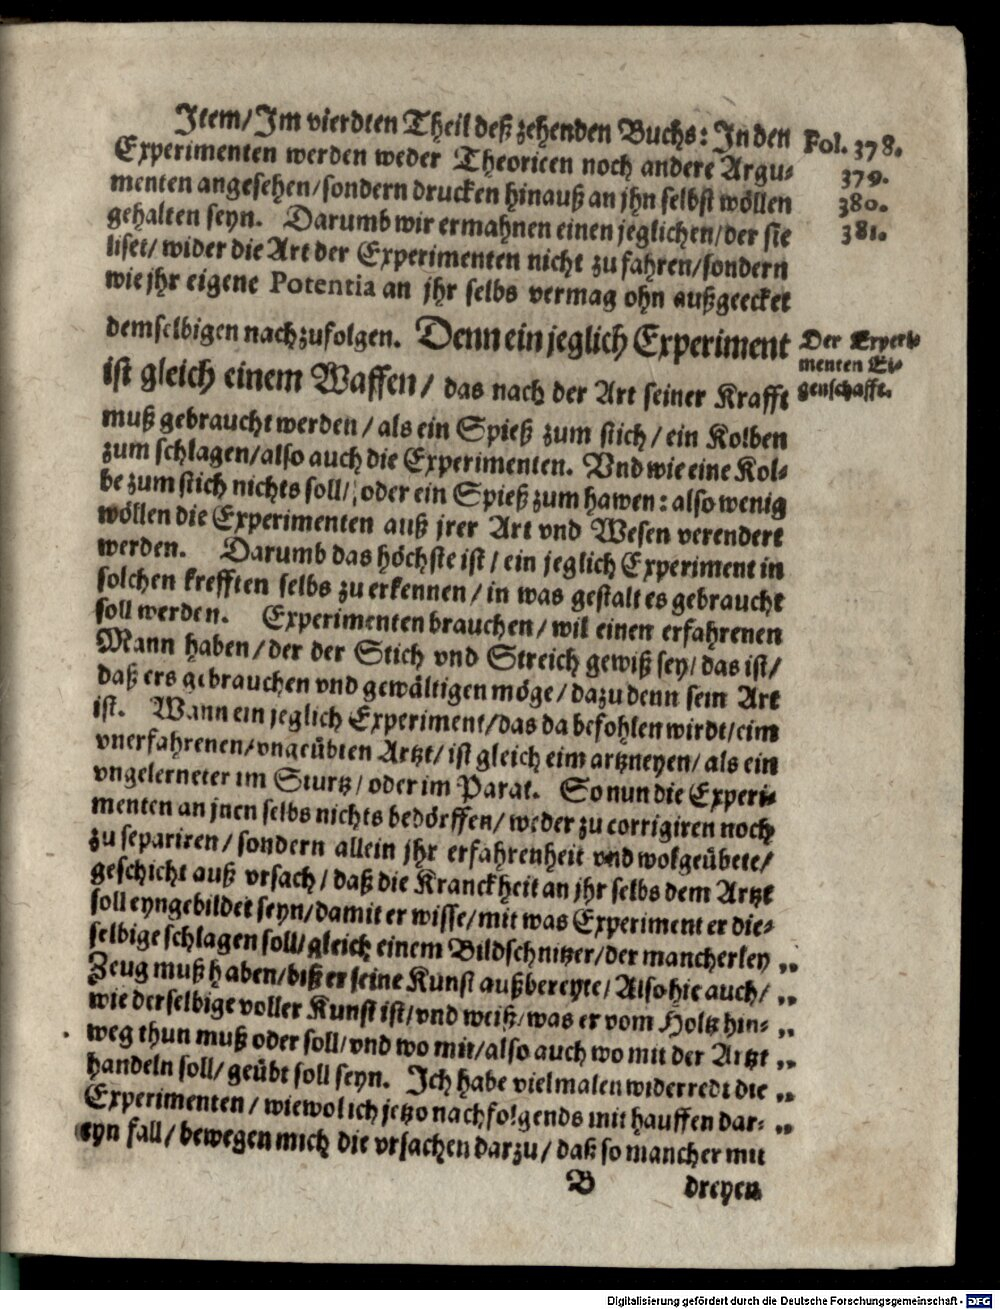 Item/ Im vierdten Theil deß zehenden Buchs: In den
Fol. 378.
Experimenten werden weder Theoricen noch andere Argu-
379.
menten angesehen/ sondern drucken hinauß an jhn selbst wöllen
380.
gehalten seyn. Darumb wir ermahnen einen jeglichen/ der sie
381.
liset/ wider die Art der Experimenten nicht zu fahren/ sondern
wie jhr eigene Potentia an jhr selbs vermag ohn außgeecket
demselbigen nachzufolgen. Denn ein jeglich Experiment
Der Experi-
menten Ei-
genschafft.
ist gleich einem Waffen/ das nach der Art seiner Krafft
muß gebraucht werden/ als ein Spieß zum stich/ ein Kolben
zum schlagen/ also auch die Experimenten. Vnd wie eine Kol-
be zum stich nichts soll/ oder ein Spieß zum hawen: also wenig
wöllen die Experimenten auß jrer Art vnd Wesen verendert
werden. Darumb das höchste ist/ ein jeglich Experiment in
solchen krefften selbs zu erkennen/ in was gestalt es gebraucht
soll werden. Experimenten brauchen/ wil einen erfahrenen
Mann haben/ der der Stich vnd Streich gewiß sey/ das ist/
daß ers gebrauchen vnd gewältigen möge/ dazu denn sein Art
ist. Wann ein jeglich Experiment/ das da befohlen wirdt/ eim
vnerfahrenen/ vngeübten Artzt/ ist gleich eim artzneyen/ als ein
vngelerneter im Sturtz/ oder im Parat. So nun die Experi-
menten an jnen selbs nichts bedörffen/ weder zu corrigiren noch
zu separiren/ sondern allein jhr erfahrenheit vnd wolgeübete/
geschicht auß vrsach/ daß die Kranckheit an jhr selbs dem Artzt
soll eyngebildet seyn/ damit er wisse/ mit was Experiment er die-
selbige schlagen soll/ gleich einem Bildschnitzer/ der mancherley „
Zeug muß haben/ biß er seine Kunst außbereyte/ Also hie auch/ „
wie derselbige voller Kunst ist/ vnd weiß/ was er vom Holtz hin- „
weg thun muß oder soll/ vnd wo mit/ also auch wo mit der Artzt „
handeln soll/ geübt soll seyn. Ich habe vielmalen widerredt die „
Experimenten/ wiewol ich jetzo nachfolgends mit hauffen dar- „
eyn fall/ bewegen mich die vrsachen darzu/ daß so mancher mit
B dreyen
Digitalisierung gefördert durch die Deutsche Forschungsgemeinschaft - DFG